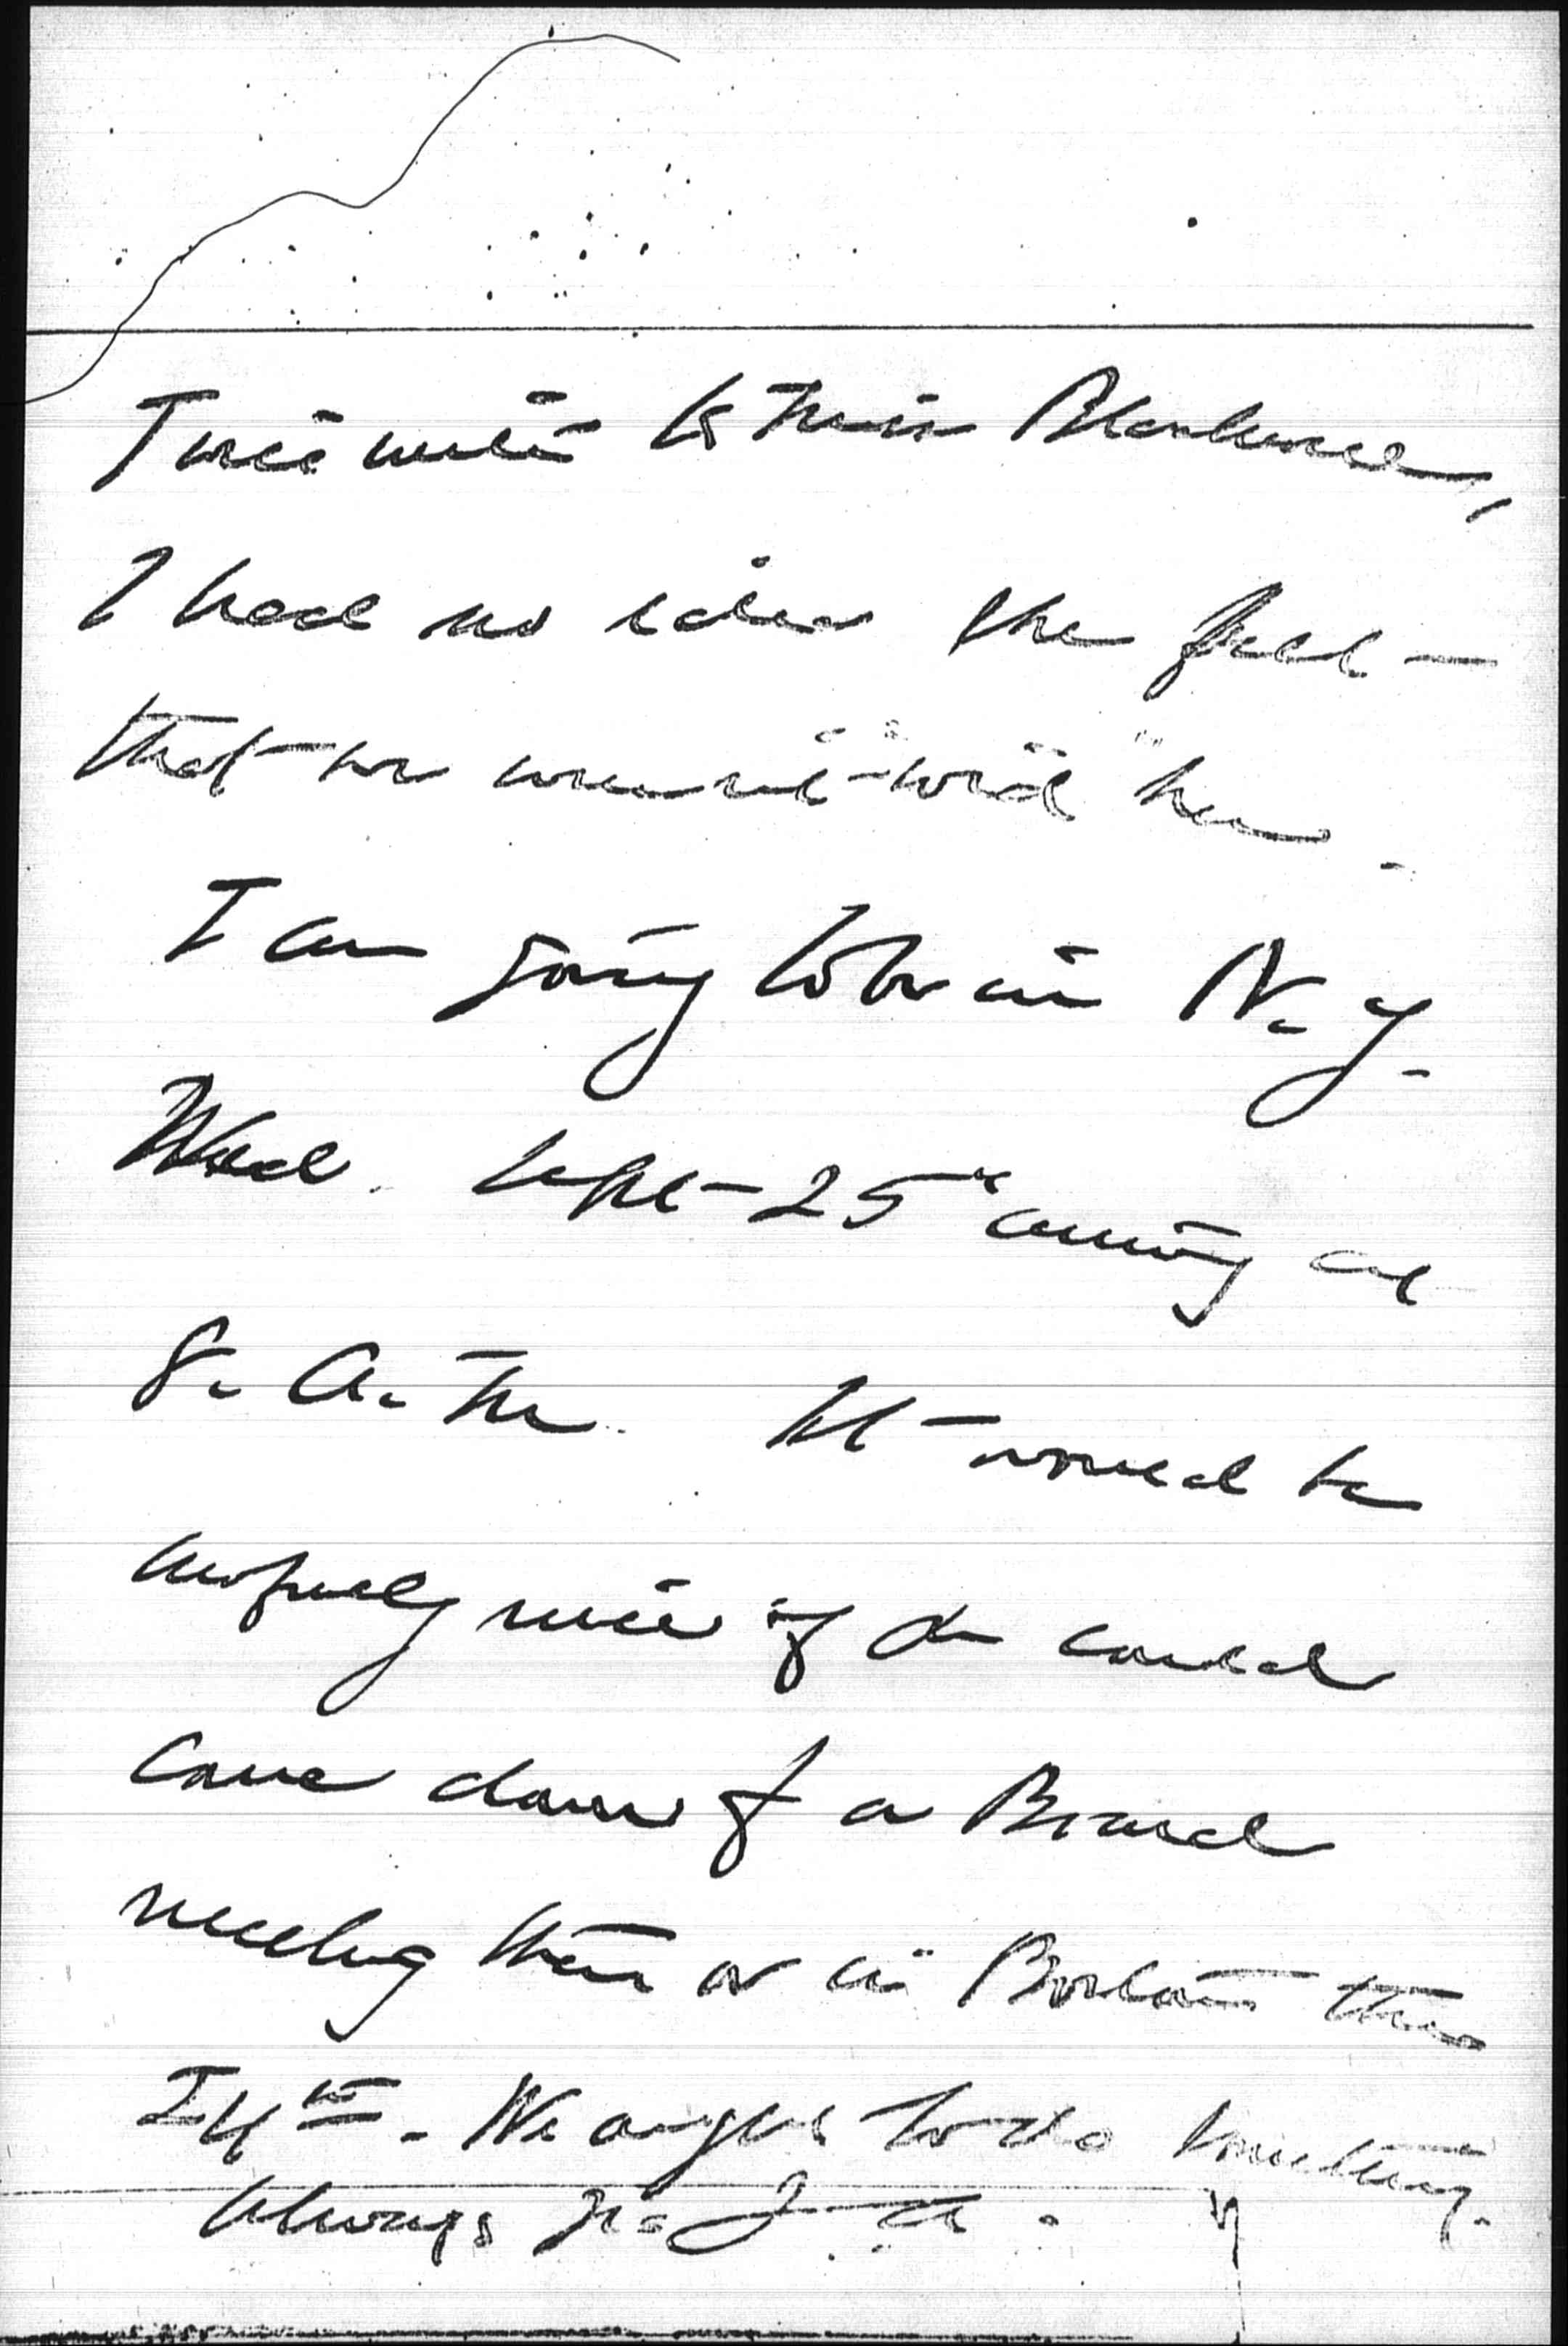 I will write to Miss Blackwell,
I had no idea the full
that we weren't with her.
I am going to be in N. Y.
Wed. Sept 25" arriving at
8. A. M. It would be
awfully nice if we could
come down for a Board
meeting there or in Boston the
24th. We ought to do something.
Always